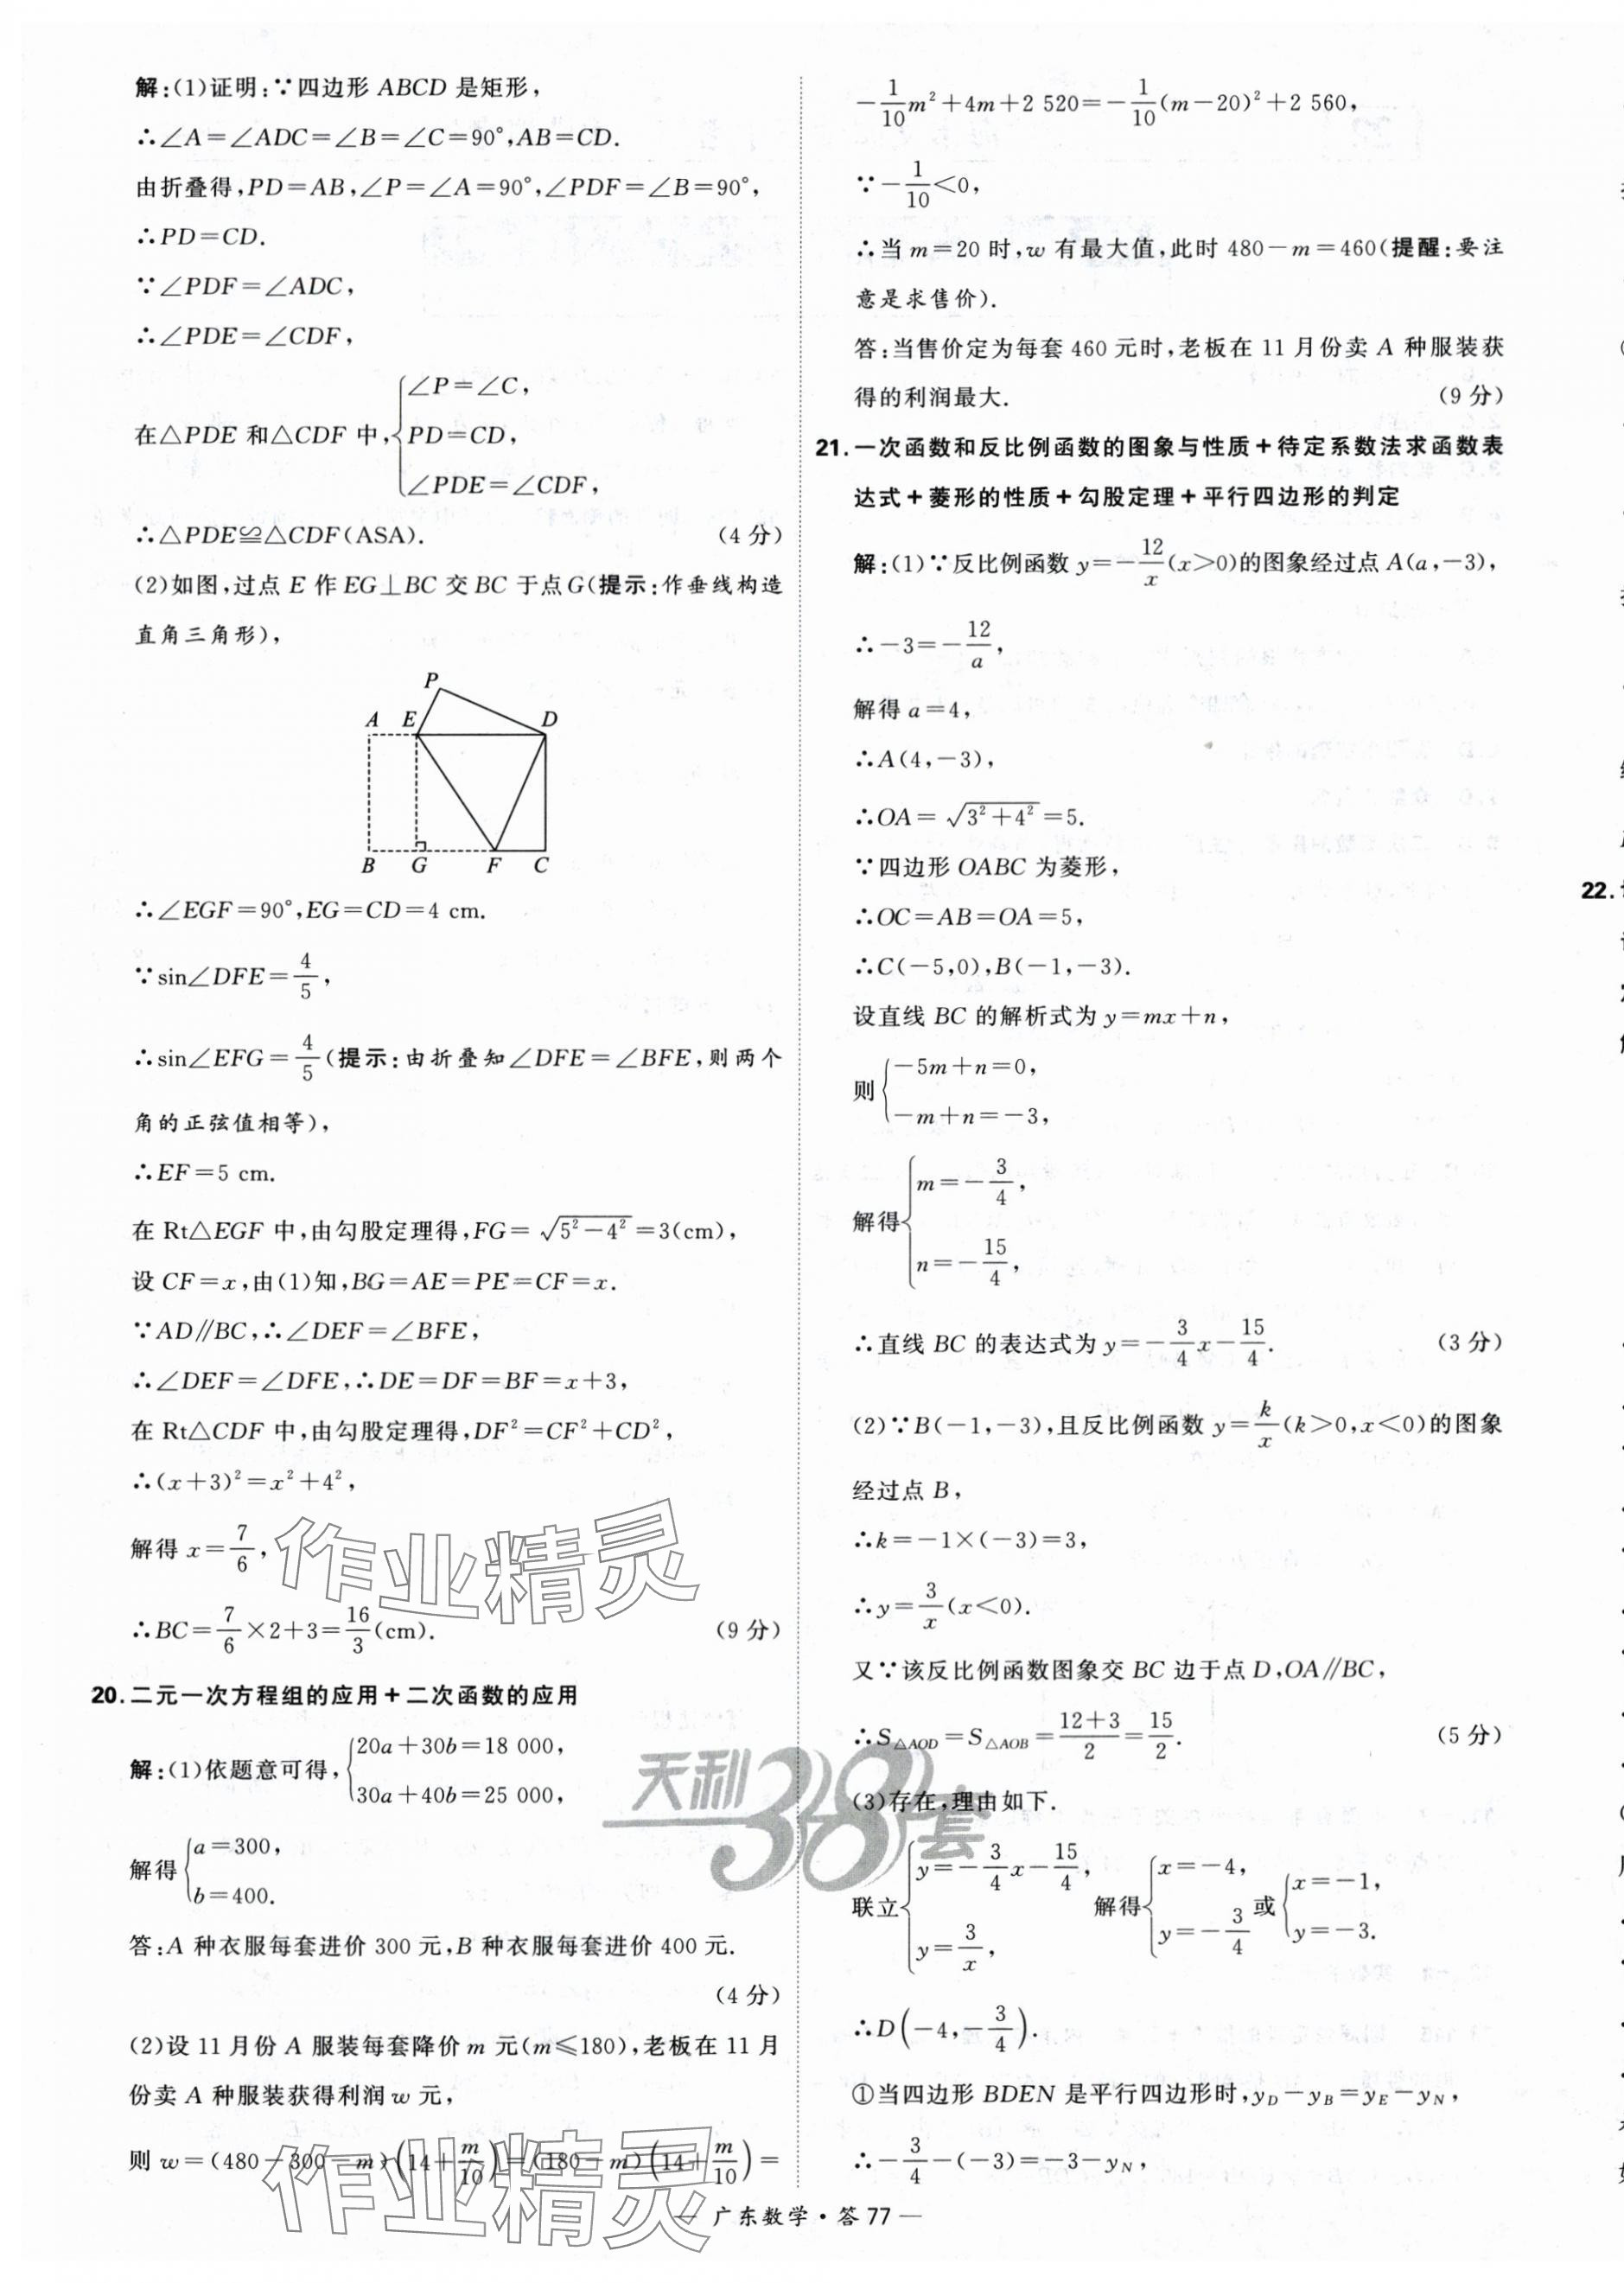 解:(1)证明:∵四边形 ABCD 是矩形,
∴∠A=∠ADC=∠B=∠C=90°,AB=CD.
由折叠得,PD=AB,∠P=∠A=90°,∠PDF=∠B=90°,
∴PD=CD.
∵∠PDF=∠ADC,
∴∠PDE=∠CDF,
在△PDE 和△CDF 中,{∠P=∠C,
PD=CD,
∠PDE=∠CDF,
∴△PDE≌△CDF(ASA). (4 分)
(2)如图,过点 E 作 EG⊥BC 交 BC 于点 G(提示:作垂线构造
直角三角形),
P
A E D
B G F C
∴∠EGF=90°,EG=CD=4 cm.
∵sin∠DFE=4/5,
∴sin∠EFG=4/5(提示:由折叠知∠DFE=∠BFE,则两个
角的正弦值相等),
∴EF=5 cm.
在 Rt△EGF 中,由勾股定理得,FG=√(5²-4²)=3(cm),
设 CF=x,由(1)知,BG=AE=PE=CF=x.
∵AD∥BC,∴∠DEF=∠BFE,
∴∠DEF=∠DFE,∴DE=DF=BF=x+3,
在 Rt△CDF 中,由勾股定理得,DF²=CF²+CD²,
∴(x+3)²=x²+4²,
解得 x=7/6,
∴BC=7/6×2+3=16/3(cm). (9 分)
20.二元一次方程组的应用+二次函数的应用
解:(1)依题意可得,{20a+30b=18 000,
30a+40b=25 000,
解得{a=300,
b=400.
答:A 种衣服每套进价 300 元,B 种衣服每套进价 400 元.
(4 分)
(2)设 11 月份 A 服装每套降价 m 元(m≤180),老板在 11 月
份卖 A 种服装获得利润 w 元,
则 w=(480-300-m)(14+m/10)=(180-m)(14+m/10)=
-1/10m²+4m+2 520=-1/10(m-20)²+2 560,
∵-1/10<0,
∴当 m=20 时,w 有最大值,此时 480-m=460(提醒:要注
意是求售价).
答:当售价定为每套 460 元时,老板在 11 月份卖 A 种服装获
得的利润最大. (9 分)
21.一次函数和反比例函数的图象与性质+待定系数法求函数表
达式+菱形的性质+勾股定理+平行四边形的判定
解:(1)∵反比例函数 y=-12/x(x>0)的图象经过点 A(a,-3),
∴-3=-12/a,
解得 a=4,
∴A(4,-3),
∴OA=√(3²+4²)=5.
∵四边形 OABC 为菱形,
∴OC=AB=OA=5,
∴C(-5,0),B(-1,-3).
设直线 BC 的解析式为 y=mx+n,
则{-5m+n=0,
-m+n=-3,
解得{m=-3/4,
n=-15/4,
∴直线 BC 的表达式为 y=-3/4x-15/4. (3 分)
(2)∵B(-1,-3),且反比例函数 y=k/x(k>0,x<0)的图象
经过点 B,
∴k=-1×(-3)=3,
∴y=3/x(x<0).
又∵该反比例函数图象交 BC 边于点 D,OA∥BC,
∴S△AOD=S△AOB=(12+3)/2=15/2. (5 分)
(3)存在,理由如下.
联立{y=-3/4x-15/4,
y=3/x,
解得{x=-4,
y=-3/4
或{x=-1,
y=-3.
∴D(-4,-3/4).
①当四边形 BDEN 是平行四边形时,yD-yB=yE-yN,
∴-3/4-(-3)=-3-yN,
22.
作业精灵
天利38套
作业精灵
— 广东数学·答 77 —